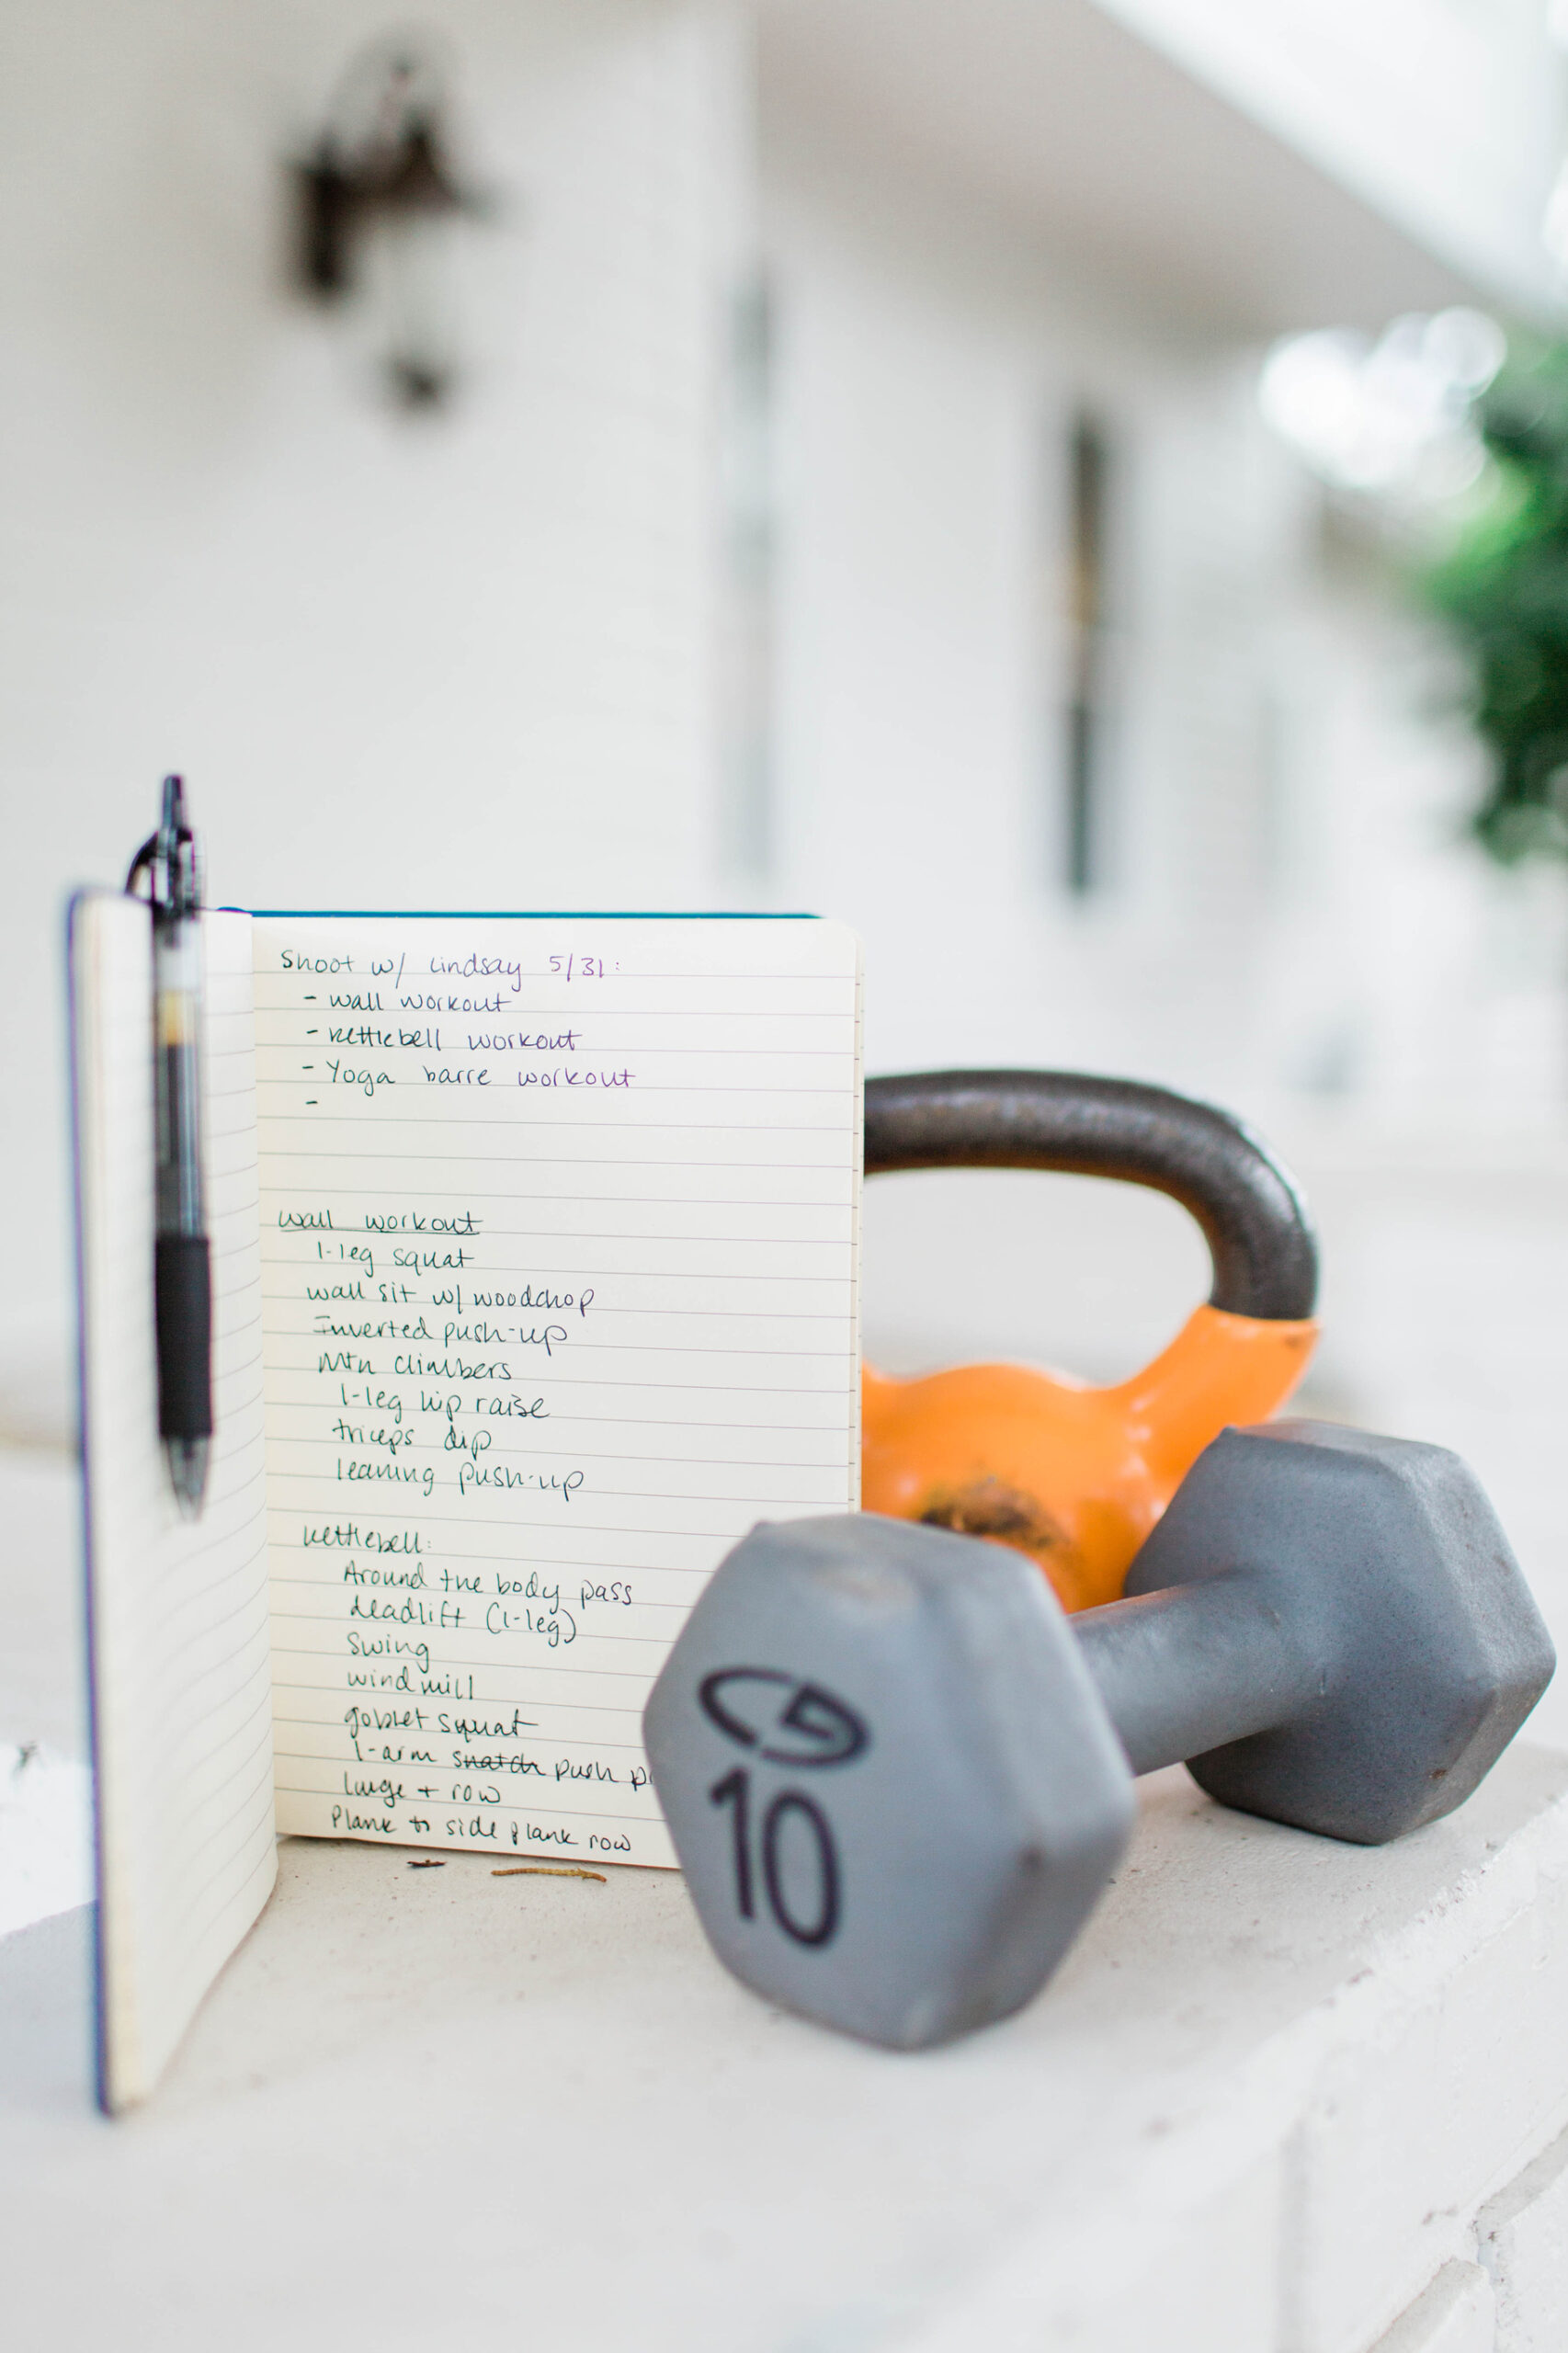 Shoot w/ Lindsay 5/31:
- wall workout
- kettlebell workout
- Yoga barre workout
-
wall workout
1-leg squat
wall sit w/ woodchop
Inverted push-up
Mtn climbers
1-leg hip raise
triceps dip
leaning push-up
kettlebell:
Around the body pass
deadlift (1-leg)
Swing
windmill
goblet squat
1-arm snatch push
lunge + row
Plank to side plank row
10